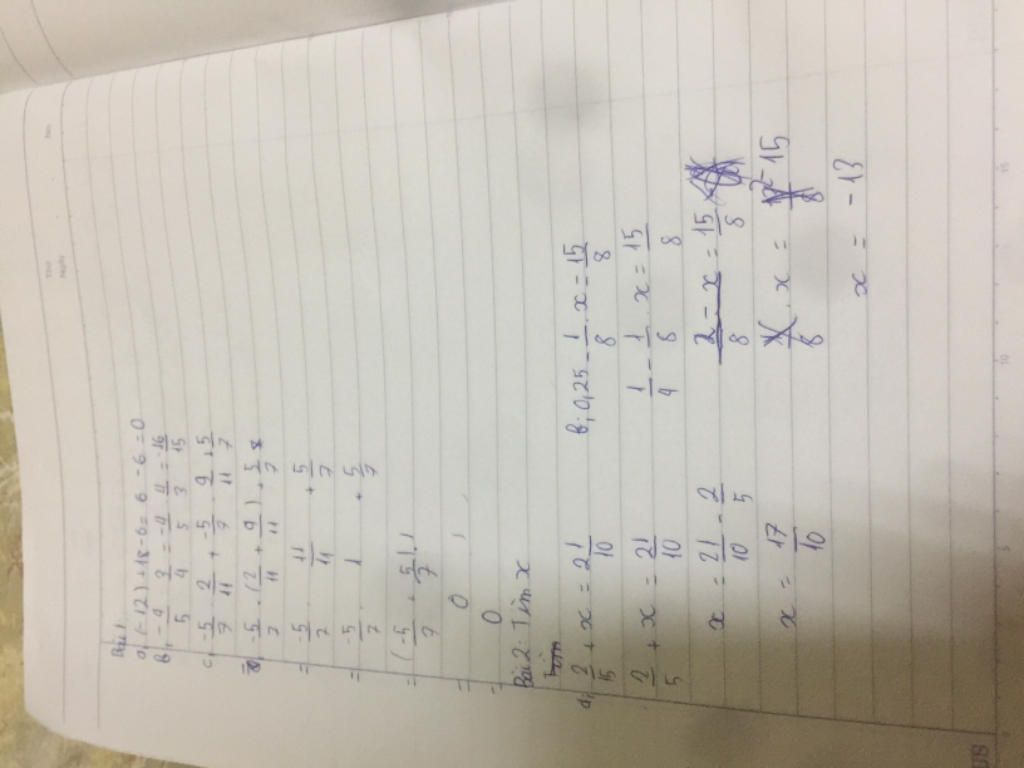 Bài 1
a, (-12) + 18 - 6 = 6 - 6 = 0
b, -4/5 : 3/4 = -4/5 . 4/3 = -16/15
c, -5/7 . 2/11 + -5/7 . 9/11 + 5/7
= -5/7 . (2/11 + 9/11) + 5/7
= -5/7 . 11/11 + 5/7
= -5/7 . 1 + 5/7
= (-5/7 + 5/7) . 1
= 0 . 1
= 0
Bài 2: Tìm x
a, 2/5 + x = 21/10
2/5 + x = 21/10
x = 21/10 - 2/5
x = 17/10
b, 0,25 - 1/8 . x = 15/8
1/4 - 1/8 . x = 15/8
2/8 - x = 15/8
1/8 . x = 2-15/8
x = -13